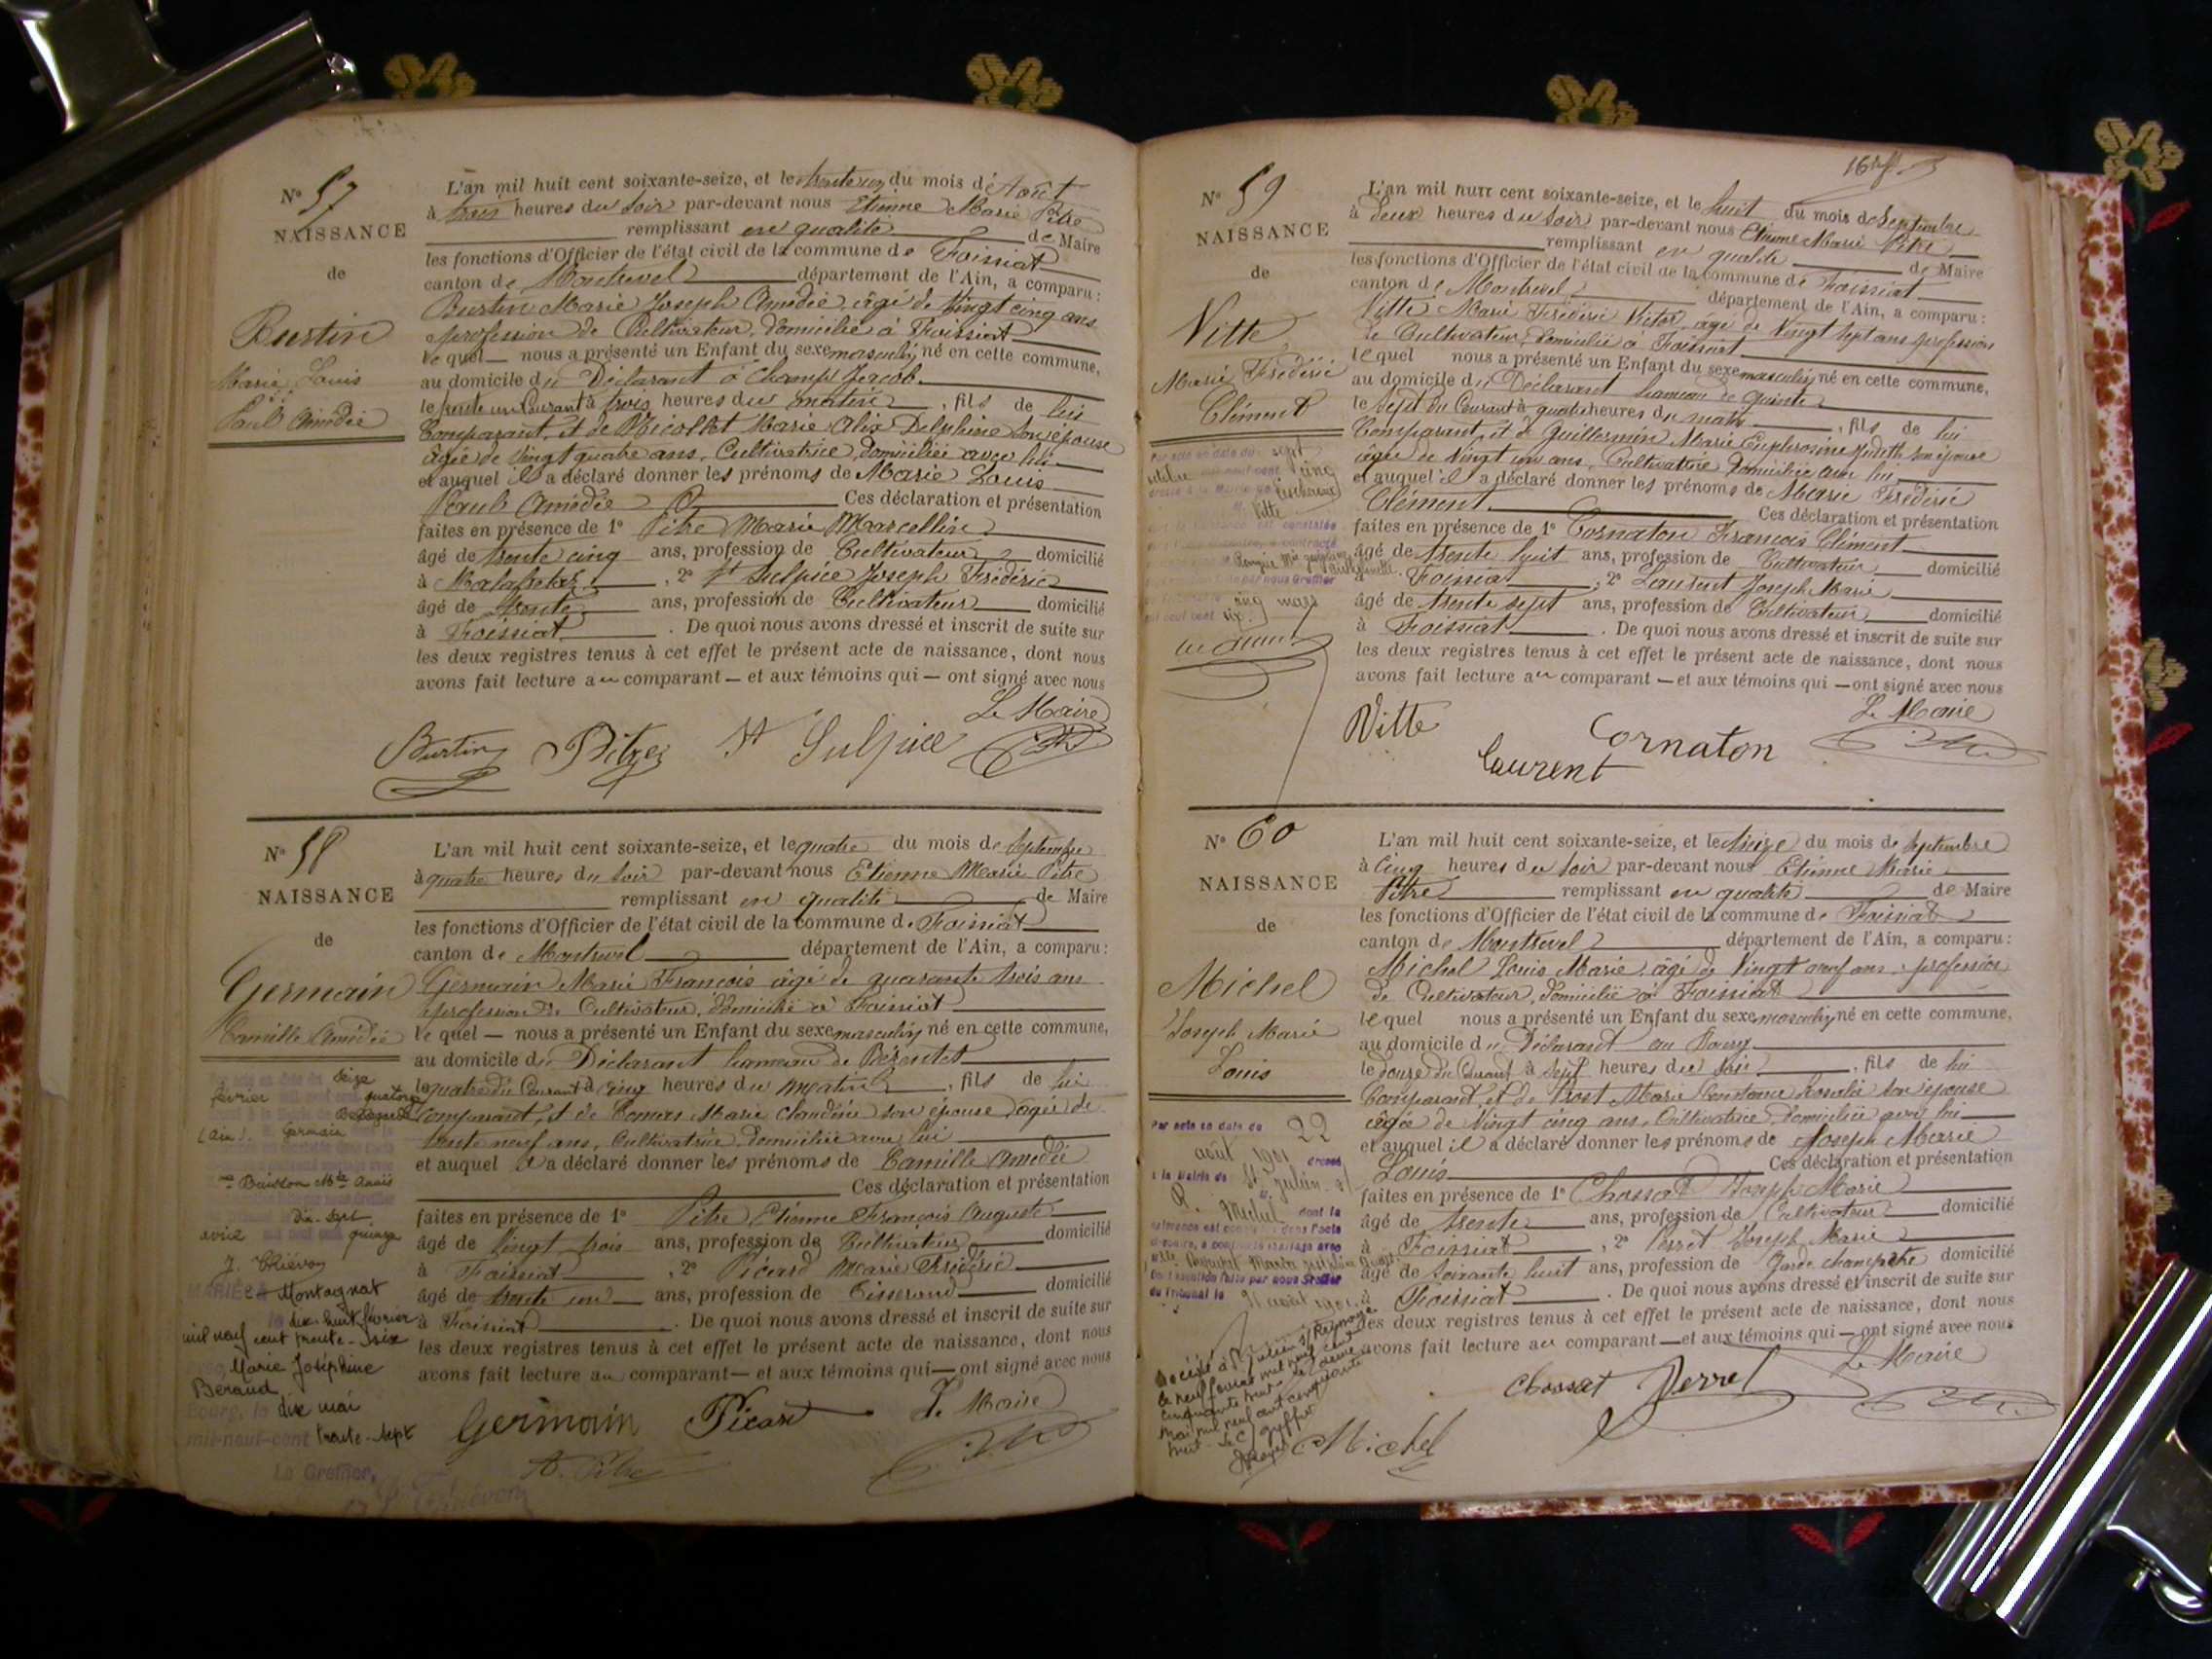 N° 57
NAISSANCE
de
Burtin
Marie Louis
Paul Amédée
L'an mil huit cent soixante-seize, et le trente un du mois d'Août
à trois heures du soir par-devant nous Etienne Marie Pitre
remplissant en qualité de Maire
les fonctions d'Officier de l'état civil de la commune de Foissiat
canton de Montrevel département de l'Ain, a comparu :
Burtin Marie Joseph Amédée âgé de Vingt cinq ans
profession de Cultivateur, domicilié à Foissiat
le quel — nous a présenté un Enfant du sexe masculin né en cette commune,
au domicile du Déclarant à Champ Jacob
le trente un Courant à trois heures du matin, fils de lui
Comparant, et de Marie Alix Delphine son épouse
âgée de Vingt quatre ans, Cultivatrice, domiciliée avec lui
et auquel il a déclaré donner les prénoms de Marie Louis
Paul Amédée Ces déclaration et présentation
faites en présence de 1° Pitre Marie Marcellin
âgé de trente cinq ans, profession de Cultivateur domicilié
à Malafretaz, 2° St Sulpice Joseph Frédéric
âgé de trente ans, profession de Cultivateur domicilié
à Foissiat . De quoi nous avons dressé et inscrit de suite sur
les deux registres tenus à cet effet le présent acte de naissance, dont nous
avons fait lecture au comparant — et aux témoins qui — ont signé avec nous
Le Maire
Burtin Pitre St Sulpice
N° 58
NAISSANCE
de
Germain
Camille Amédée
L'an mil huit cent soixante-seize, et le quatre du mois de Septembre
à quatre heures du soir par-devant nous Etienne Marie Pitre
remplissant en qualité de Maire
les fonctions d'Officier de l'état civil de la commune de Foissiat
canton de Montrevel département de l'Ain, a comparu :
Germain Marie François âgé de quarante trois ans
profession de Cultivateur, domicilié à Foissiat
le quel — nous a présenté un Enfant du sexe masculin né en cette commune,
au domicile du Déclarant hameau de
le quatre du Courant à cinq heures du matin, fils de lui
comparant, et de Marie Claudine son épouse âgée de
trente neuf ans, Cultivatrice, domiciliée avec lui
et auquel il a déclaré donner les prénoms de Camille Amédée
Ces déclaration et présentation
faites en présence de 1° Pitre Etienne François Auguste
âgé de Vingt trois ans, profession de Cultivateur domicilié
à Foissiat, 2° Picard Marie Frédéric
âgé de trente un ans, profession de Tisserand domicilié
à Foissiat . De quoi nous avons dressé et inscrit de suite sur
les deux registres tenus à cet effet le présent acte de naissance, dont nous
avons fait lecture au comparant — et aux témoins qui — ont signé avec nous
Le Maire
Germain Picard
A. Pitre
seize
février quatorze
(Ain). Germain
Buisson Mie Anaïs
dix-sept
avril quinze
MARIÉ à Montagnat
le dix-huit février
mil neuf cent trente-six
Marie Joséphine
Beraud
Bourg, le dix mai
mil-neuf-cent trente-sept
Le Greffier,
16
N° 59
NAISSANCE
de
Vitte
Marie Frédéric
Clément
L'an mil huit cent soixante-seize, et le huit du mois de Septembre
à deux heures du soir par-devant nous Etienne Marie Pitre
remplissant en qualité de Maire
les fonctions d'Officier de l'état civil de la commune de Foissiat
canton de Montrevel département de l'Ain, a comparu :
Vitte Marie Frédéric Victor, âgé de Vingt sept ans profession
de Cultivateur, domicilié à Foissiat
le quel nous a présenté un Enfant du sexe masculin né en cette commune,
au domicile du Déclarant hameau de
le sept du Courant à quatre heures du matin, fils de lui
Comparant, et de Guillermin Marie Euphrosine Judith son épouse
âgée de Vingt un ans, Cultivatrice domiciliée avec lui
et auquel il a déclaré donner les prénoms de Marie Frédéric
Clément. Ces déclaration et présentation
faites en présence de 1° Cornaton François Clément
âgé de trente huit ans, profession de Cultivateur domicilié
à Foissiat, 2° Laurent Joseph Marie
âgé de trente sept ans, profession de Cultivateur domicilié
à Foissiat . De quoi nous avons dressé et inscrit de suite sur
les deux registres tenus à cet effet le présent acte de naissance, dont nous
avons fait lecture au comparant — et aux témoins qui — ont signé avec nous
Le Maire
Vitte Cornaton
Laurent
sept
octobre cinq
Vitte
cinq mars
six
N° 60
NAISSANCE
de
Michel
Joseph Marie
Louis
L'an mil huit cent soixante-seize, et le treize du mois de Septembre
à cinq heures du soir par-devant nous Etienne Marie
Pitre remplissant en qualité de Maire
les fonctions d'Officier de l'état civil de la commune de Foissiat
canton de Montrevel département de l'Ain, a comparu :
Michel Louis Marie, âgé de Vingt neuf ans, profession
de Cultivateur, domicilié à Foissiat
le quel nous a présenté un Enfant du sexe masculin né en cette commune,
au domicile du Déclarant au Bourg
le douze du Courant à sept heures du soir, fils de lui
Comparant et de Prost Marie Constance Rosalie son épouse
âgée de Vingt cinq ans, Cultivatrice, domiciliée avec lui
et auquel il a déclaré donner les prénoms de Joseph Marie
Louis Ces déclaration et présentation
faites en présence de 1° Chossat Joseph Marie
âgé de trente ans, profession de Cultivateur domicilié
à Foissiat, 2° Perret Joseph Marie
âgé de soixante huit ans, profession de Garde champêtre domicilié
à Foissiat . De quoi nous avons dressé et inscrit de suite sur
les deux registres tenus à cet effet le présent acte de naissance, dont nous
avons fait lecture au comparant — et aux témoins qui — ont signé avec nous
Le Maire
Chossat Perret
Michel
Par acte en date du 22
août 1901 dressé
à la Mairie de St Julien s/
R. M. Michel dont la
naissance est constatée dans l'acte
ci-contre, a contracté mariage avec
Mlle
par nous Greffier
du Tribunal le 31 août 1901.
Décédé à St Julien s/Reyssouze
le neuf février mil neuf cent
cinquante huit. le
mai mil neuf cent cinquante
huit. Le Greffier